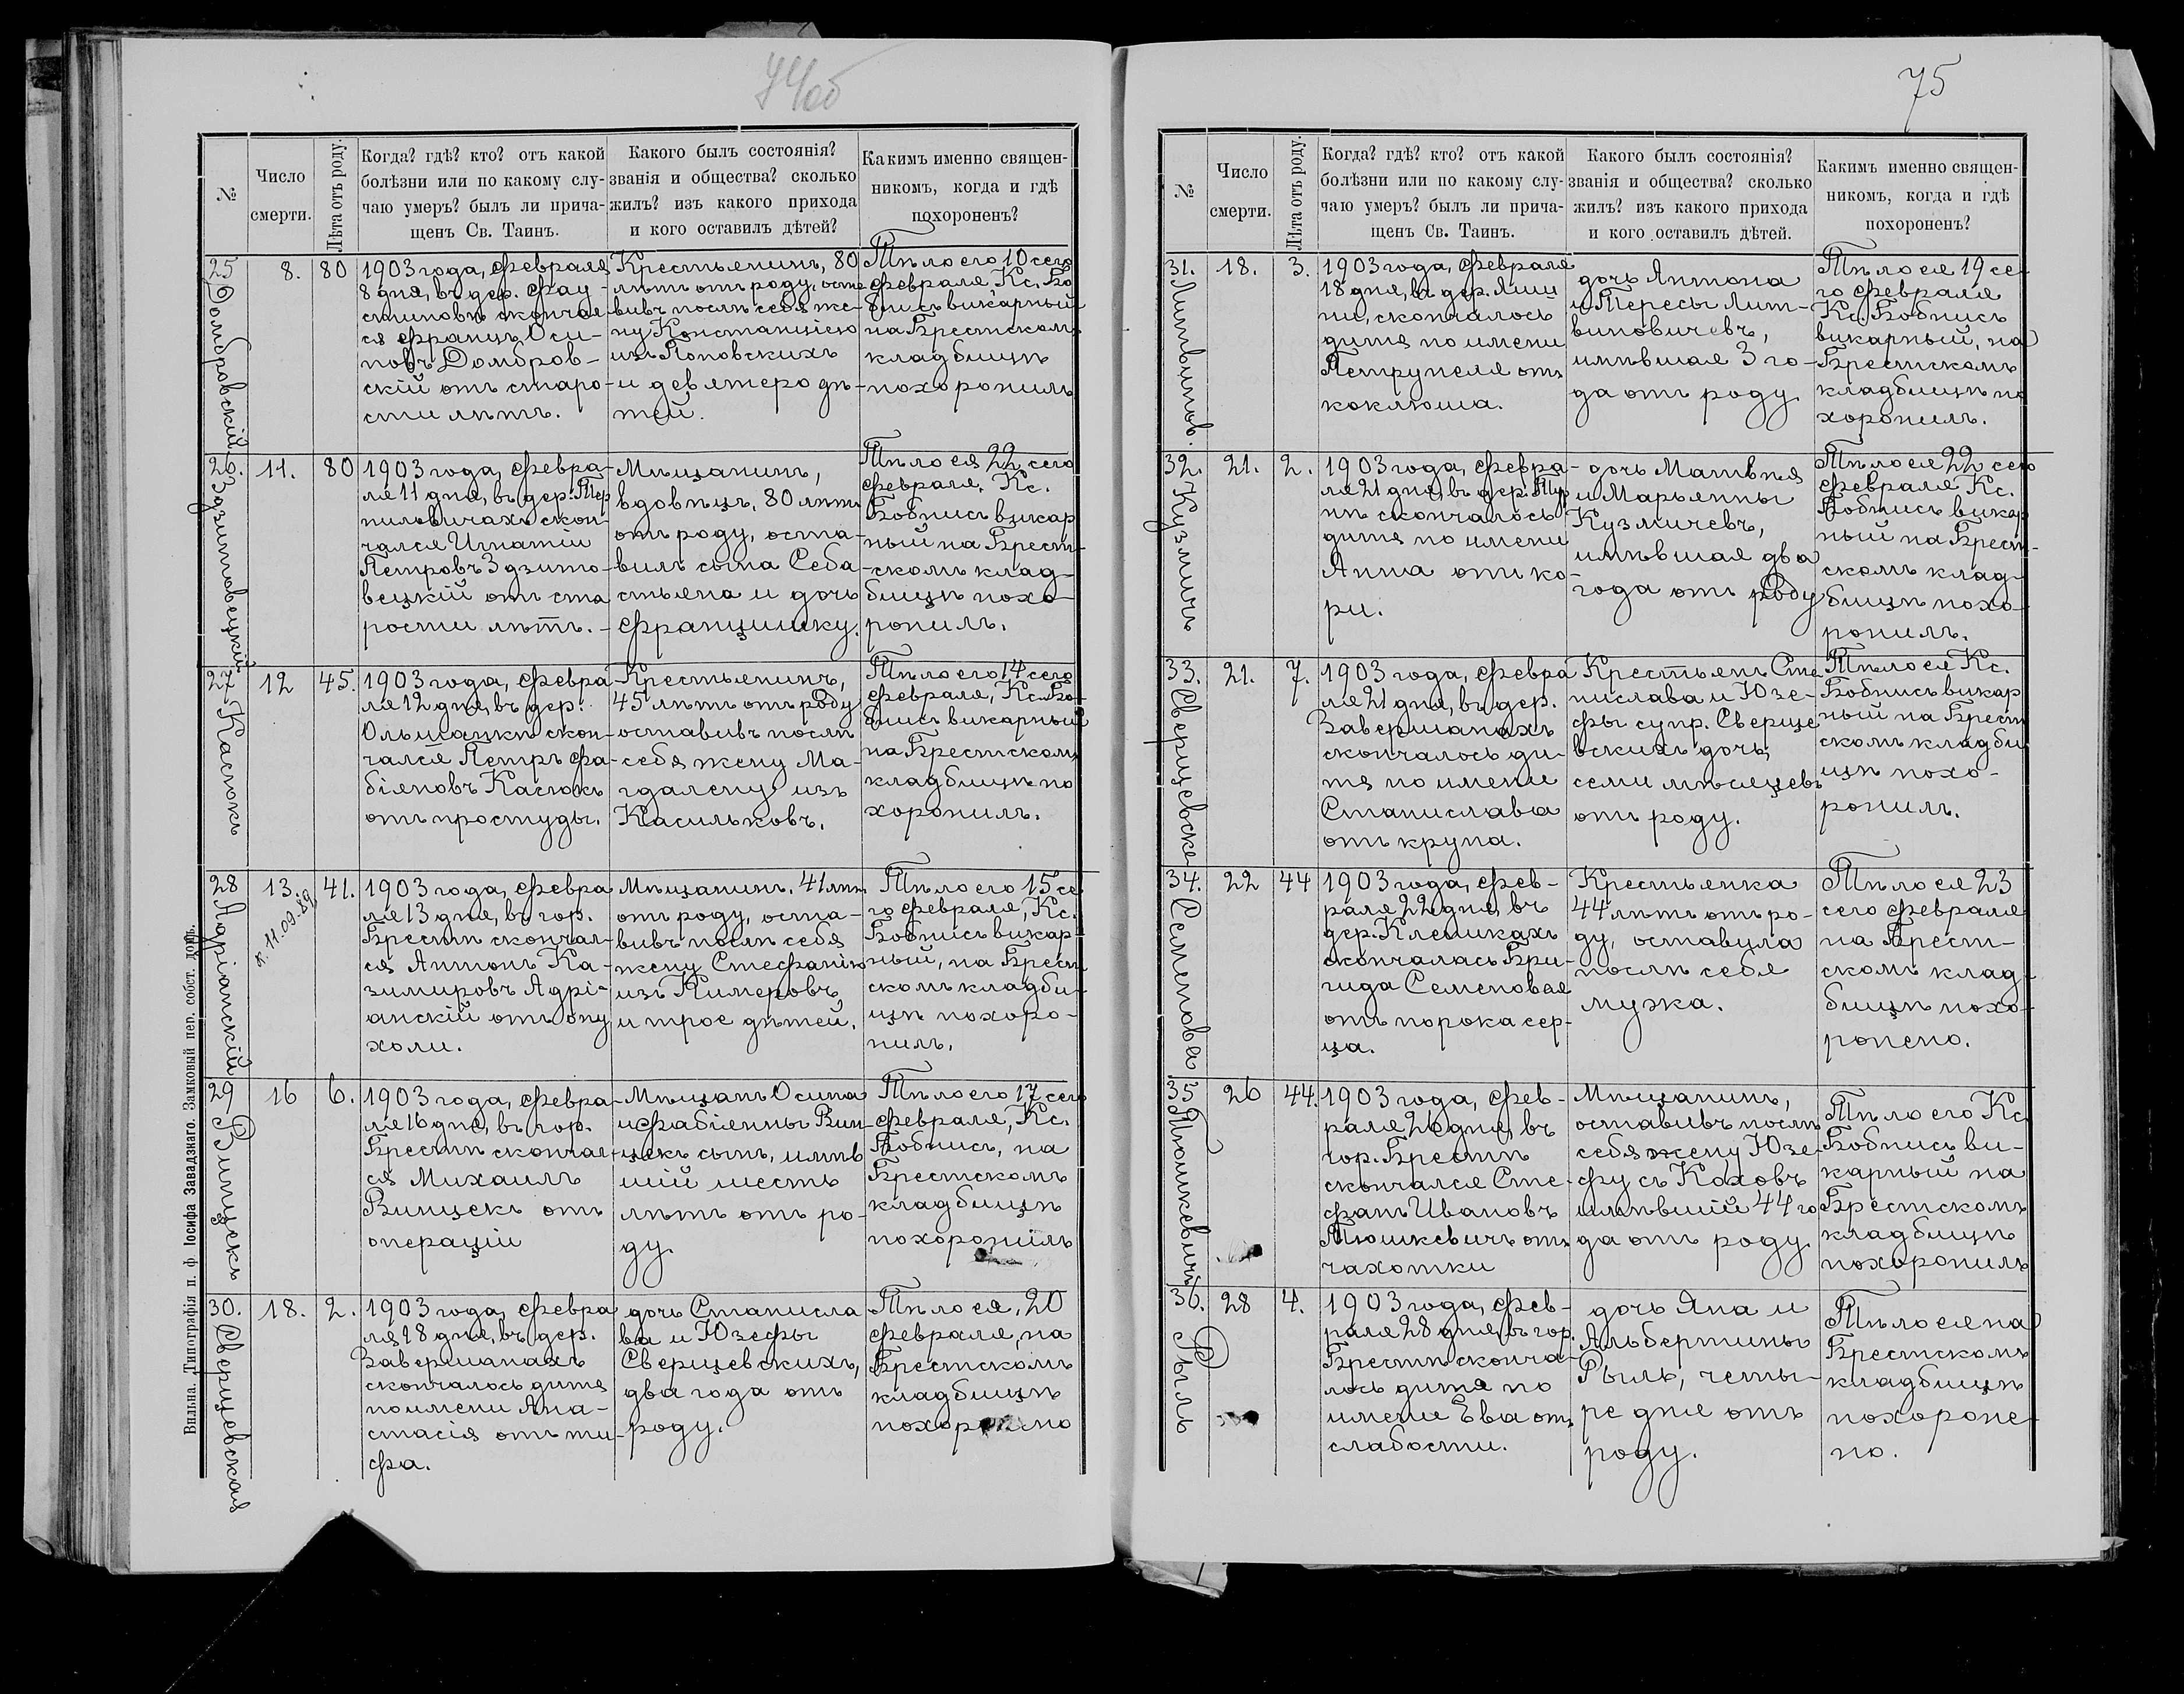 74об
№
Число
смерти.
Лѣта отъ роду.
Когда? гдѣ? кто? отъ какой
болѣзни или по какому слу-
чаю умеръ? былъ ли прича-
щенъ Св. Таинъ.
Какого былъ состоянія?
званія и общества? сколько
жилъ? изъ какого прихода
и кого оставилъ дѣтей?
Какимъ именно священ-
никомъ, когда и гдѣ
похороненъ?
25
Домбровскій
8.
80
1903 года, февраля
8 дня, въ дер. Фау-
стиновѣ скончал
ся Францъ Оси-
повъ Домбров-
скій отъ старо-
сти лѣтъ.
Крестьянинъ, 80
лѣтъ отъ роду, оста
вивъ послѣ себя же-
ну Констанцію
изъ Поповскихъ
и девятеро дѣ-
тей.
Тѣло его 10 сего
февраля, Кс. Бо
бнисъ викарный
на Брестскомъ
кладбищѣ
похоронилъ
26.
Здзитовецкій
11.
80
1903 года, февра-
ля 11 дня, въ дер. Тер
пиловичахъ скон-
чался Игнатій
Петровъ Здзито-
вецкій отъ ста
рости лѣтъ.
Мѣщанинъ,
вдовецъ, 80 лѣтъ
отъ роду, оста-
вилъ сына Себа
стьяна и дочь
Францишку.
Тѣло ея 22 сего
февраля, Кс.
Бобнисъ викар
ный на Брест-
скомъ клад-
бищѣ похо-
ронилъ.
27
Касюкъ
12
45.
1903 года, февра
ля 12 дня, въ дер.
Ольшанки скон-
чался Петръ Фа-
біяновъ Касюкъ
отъ простуды.
Крестьянинъ,
45 лѣтъ отъ роду
оставивъ послѣ
себя жену Ма-
гдалену изъ
Касильковъ.
Тѣло его 14 сего
февраля, Кс. Бо-
бнисъ викарный
на Брестскомъ
кладбищѣ по
хоронилъ.
28
Адріанскій
13.
к. 11.09.89
41.
1903 года, февра
ля 13 дня, въ гор.
Брестѣ скончал-
ся Антонъ Ка-
зимировъ Адрі-
анскій отъ опу
холи.
Мѣщанинъ, 41 лѣтъ
отъ роду, оста-
вивъ послѣ себя
жену Стефанію
изъ Кимеровъ,
и трое дѣтей.
Тѣло его 15 се
го февраля, Кс.
Бобнисъ викар-
ный, на Брест
скомъ кладби-
щѣ похоро-
нилъ.
29
Винцекъ
16
6.
1903 года, февра-
ля 16 дня, въ гор.
Брестѣ скончал-
ся Михаилъ
Винцекъ отъ
операціи
Мѣщанъ Осипа
и Фабіянны Вин-
цекъ сынъ, имѣв
шій шесть
лѣтъ отъ ро-
ду.
Тѣло его 17 сего
февраля, Кс.
Бобнисъ, на
Брестскомъ
кладбищѣ
похоронилъ
30.
Сверщевская
18.
2.
1903 года, февра
ля 18 дня, въ дер.
Завершанахъ
скончалось дитя
по имени Ана-
стасія отъ ти-
фа.
дочь Станисла
ва и Юзефы
Сверщевскихъ,
два года отъ
роду.
Тѣло ея, 20
февраля, на
Брестскомъ
кладбищѣ
похоронено
Вильна. Типографія п. ф. Іосифа Завадзкаго. Замковый пер. собст. домъ.
75
№
Число
смерти.
Лѣта отъ роду.
Когда? гдѣ? кто? отъ какой
болѣзни или по какому слу-
чаю умеръ? былъ ли прича-
щенъ Св. Таинъ.
Какого былъ состоянія?
званія и общества? сколько
жилъ? изъ какого прихода
и кого оставилъ дѣтей.
Какимъ именно священ-
никомъ, когда и гдѣ
похороненъ?
31.
Литвинов.
18.
3.
1903 года, февраля
18 дня, въ дер. Лиш
ни, скончалось
дитя по имени
Петрунеля отъ
коклюша.
дочь Антона
и Тересы Лит-
виновичевъ,
имѣвшая 3 го-
да отъ роду
Тѣло ея 19 се-
го февраля
Кс. Бобнисъ
викарный, на
Брестскомъ
кладбищѣ по
хоронилъ.
32.
Кузмичъ
21.
2.
1903 года, февра-
ля 21 дня, въ дер. Тур
нѣ скончалось
дитя по имени
Анна отъ ко-
ри.
дочь Матвѣя
и Марьянны
Кузмичевъ,
имѣвшая два
года отъ роду
Тѣло ея 22 сего
февраля Кс.
Бобнисъ викар
ный на Брест-
скомъ клад-
бищѣ похо-
ронилъ.
33.
Сверщевска
21.
7.
1903 года, февра
ля 21 дня, въ дер.
Завершанахъ
скончалось ди-
тя по имени
Станислава
отъ крупа.
Крестьянъ Ста
нислава и Юзе-
фы супр. Сверще
вскихъ дочь,
семи мѣсяцевъ
отъ роду.
Тѣло ея Кс.
Бобнисъ викар
ный на Брест
скомъ кладби
щѣ похо-
ронилъ.
34.
Семенова
22
44
1903 года, фев-
раля 22 дня, въ
дер. Клейникахъ
скончалась Бри-
гида Семеновая
отъ порока сер-
ца.
Крестьянка
44 лѣтъ отъ ро-
ду, оставила
послѣ себя
мужа.
Тѣло ея 23
сего февраля
на Брест-
скомъ клад-
бищѣ похо-
ронено.
35
Тюшкевичъ
26
44.
1903 года, фев-
раля 26 дня, въ
гор. Брестѣ
скончался Сте-
фанъ Ивановъ
Тюшкевичъ отъ
чахотки
Мѣщанинъ,
оставивъ послѣ
себя жену Юзе-
фу съ Коховъ
имѣвшій 44 го
да отъ роду
Тѣло его Кс.
Бобнисъ ви-
карный на
Брестскомъ
кладбищѣ
похоронилъ
36.
Рыль
28
4.
1903 года, фев-
раля 28 дня, въ гор.
Брестѣ сконча-
лось дитя по
имени Ева отъ
слабости.
дочь Яна и
Альбертины
Рыль, четы-
ре дня отъ
роду.
Тѣло ея на
Брестскомъ
кладбищѣ
похороне-
но.